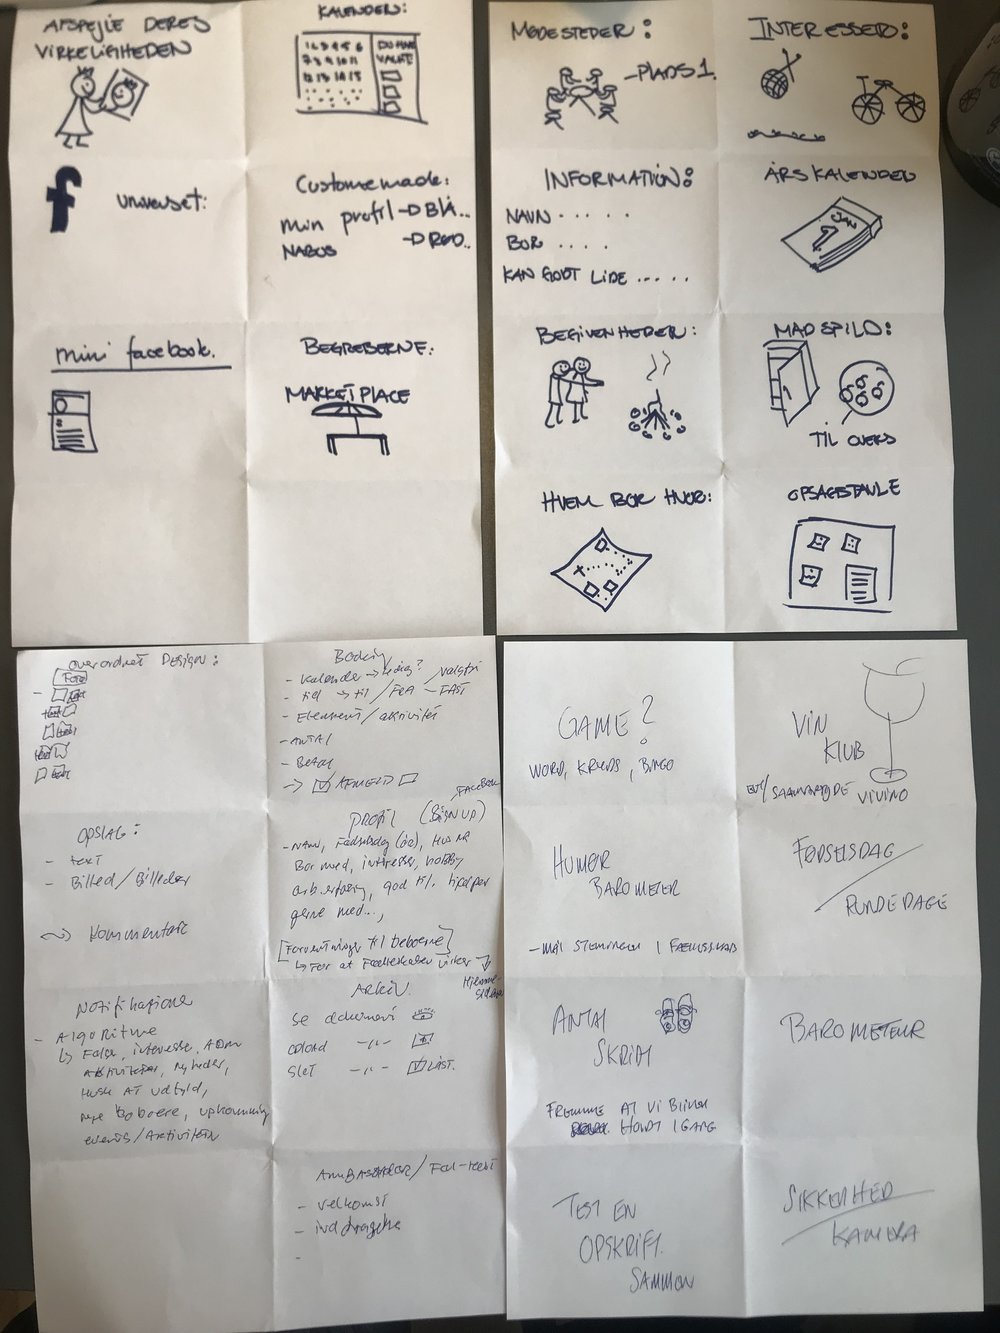 AFSPEJLE DERES
VIRKELIGHEDEN
KALENDER:
1 2 3 4 5 6
7 8 9 10 11
12 13 14 15
DU HAR
VALGT
f
universet:
Customemade:
min profil → BLÅ...
NABOS → RØD..
mini facebook.
BEGREBERNE:
MARKETPLACE
MØDESTEDER:
-PLADS 1.
INTERESSER:
INFORMATION:
NAVN . . . . .
BOR . . . .
KAN GODT LIDE .....
ÅRSKALENDER
JAN
1
BEGIVENHEDER:
MADSPILD:
TIL OVERS
HVEM BOR HVOR:
OPSLAGSTAVLE
overordnet DESIGN:
Foto
Booking
- kalender → ledig? / valgfri
- tid → til / FRA - FAST
- Element / aktivitet
- ANTAL
- Besked
→ AFMELD
OPSLAG:
- text
- Billed / Billeder
~> kommentare
Facebook
profil (SIGN UP)
- NAVN, Fødselsdag (år), HUS NR
Bor med, interesser, hobby
arb. erfaring, god til, hjælper
gerne med...,
[Forventninger til beboerne]
↳ For at Fælleskabet virker
Hjemme-
siden
Notifikationer
- Algoritme
interesse, ADM
Aktiviteter, nyheder,
HUSK AT Udfyld,
nye beboere, upkomming
events / Aktiviteter
ARKIV.
se dokument
upload -,,-
Slet -,,- LÅST.
AMBASSADØR /
- velkomst
- inddragelse
-
GAME?
WORD, KRYDS, BINGO
VIN
KLUB
EVT / SAMARBEJDE VIVINO
HUMØR
BAROMETER
- MÅL STEMNINGEN I FÆLLESSKAB
FØDSELSDAG
RUNDE DAGE
ANTAL
SKRIDT
FREMME AT VI BLIVER
HOLDT I GANG
BAROMETER
TEST EN
OPSKRIFT
SAMMEN
SIKKERHED
KAMERA